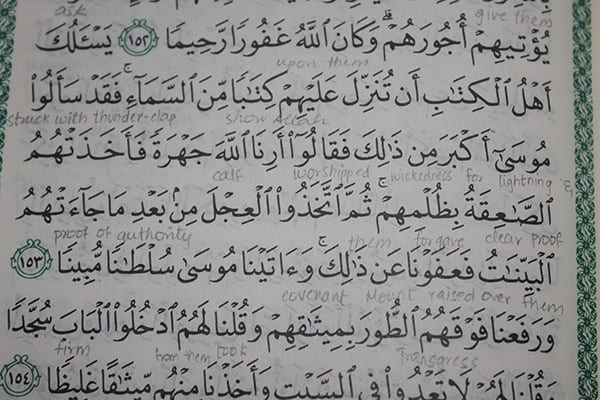 ask give them
يُؤْتِيهِمْ أُجُورَهُمْ ۗ وَكَانَ ٱللَّهُ غَفُورًا رَّحِيمًا ١٥٢ يَسْـَٔلُكَ
upon them
أَهْلُ ٱلْكِتَـٰبِ أَن تُنَزِّلَ عَلَيْهِمْ كِتَـٰبًا مِّنَ ٱلسَّمَآءِ ۚ فَقَدْ سَأَلُوا۟
struck with thunder-clap show Allah
مُوسَىٰٓ أَكْبَرَ مِن ذَٰلِكَ فَقَالُوٓا۟ أَرِنَا ٱللَّهَ جَهْرَةً فَأَخَذَتْهُمُ
calf worshipped wickedness for lightning &
ٱلصَّـٰعِقَةُ بِظُلْمِهِمْ ۚ ثُمَّ ٱتَّخَذُوا۟ ٱلْعِجْلَ مِنۢ بَعْدِ مَا جَآءَتْهُمُ
proof of authority them forgave clear proof
ٱلْبَيِّنَـٰتُ فَعَفَوْنَا عَن ذَٰلِكَ ۚ وَءَاتَيْنَا مُوسَىٰ سُلْطَـٰنًا مُّبِينًا ١٥٣
covenant Mount raised over them
وَرَفَعْنَا فَوْقَهُمُ ٱلطُّورَ بِمِيثَـٰقِهِمْ وَقُلْنَا لَهُمُ ٱدْخُلُوا۟ ٱلْبَابَ سُجَّدًا
firm from them took Transgress
وَقُلْنَا لَهُمْ لَا تَعْدُوا۟ فِى ٱلسَّبْتِ وَأَخَذْنَا مِنْهُم مِّيثَـٰقًا غَلِيظًا ١٥٤